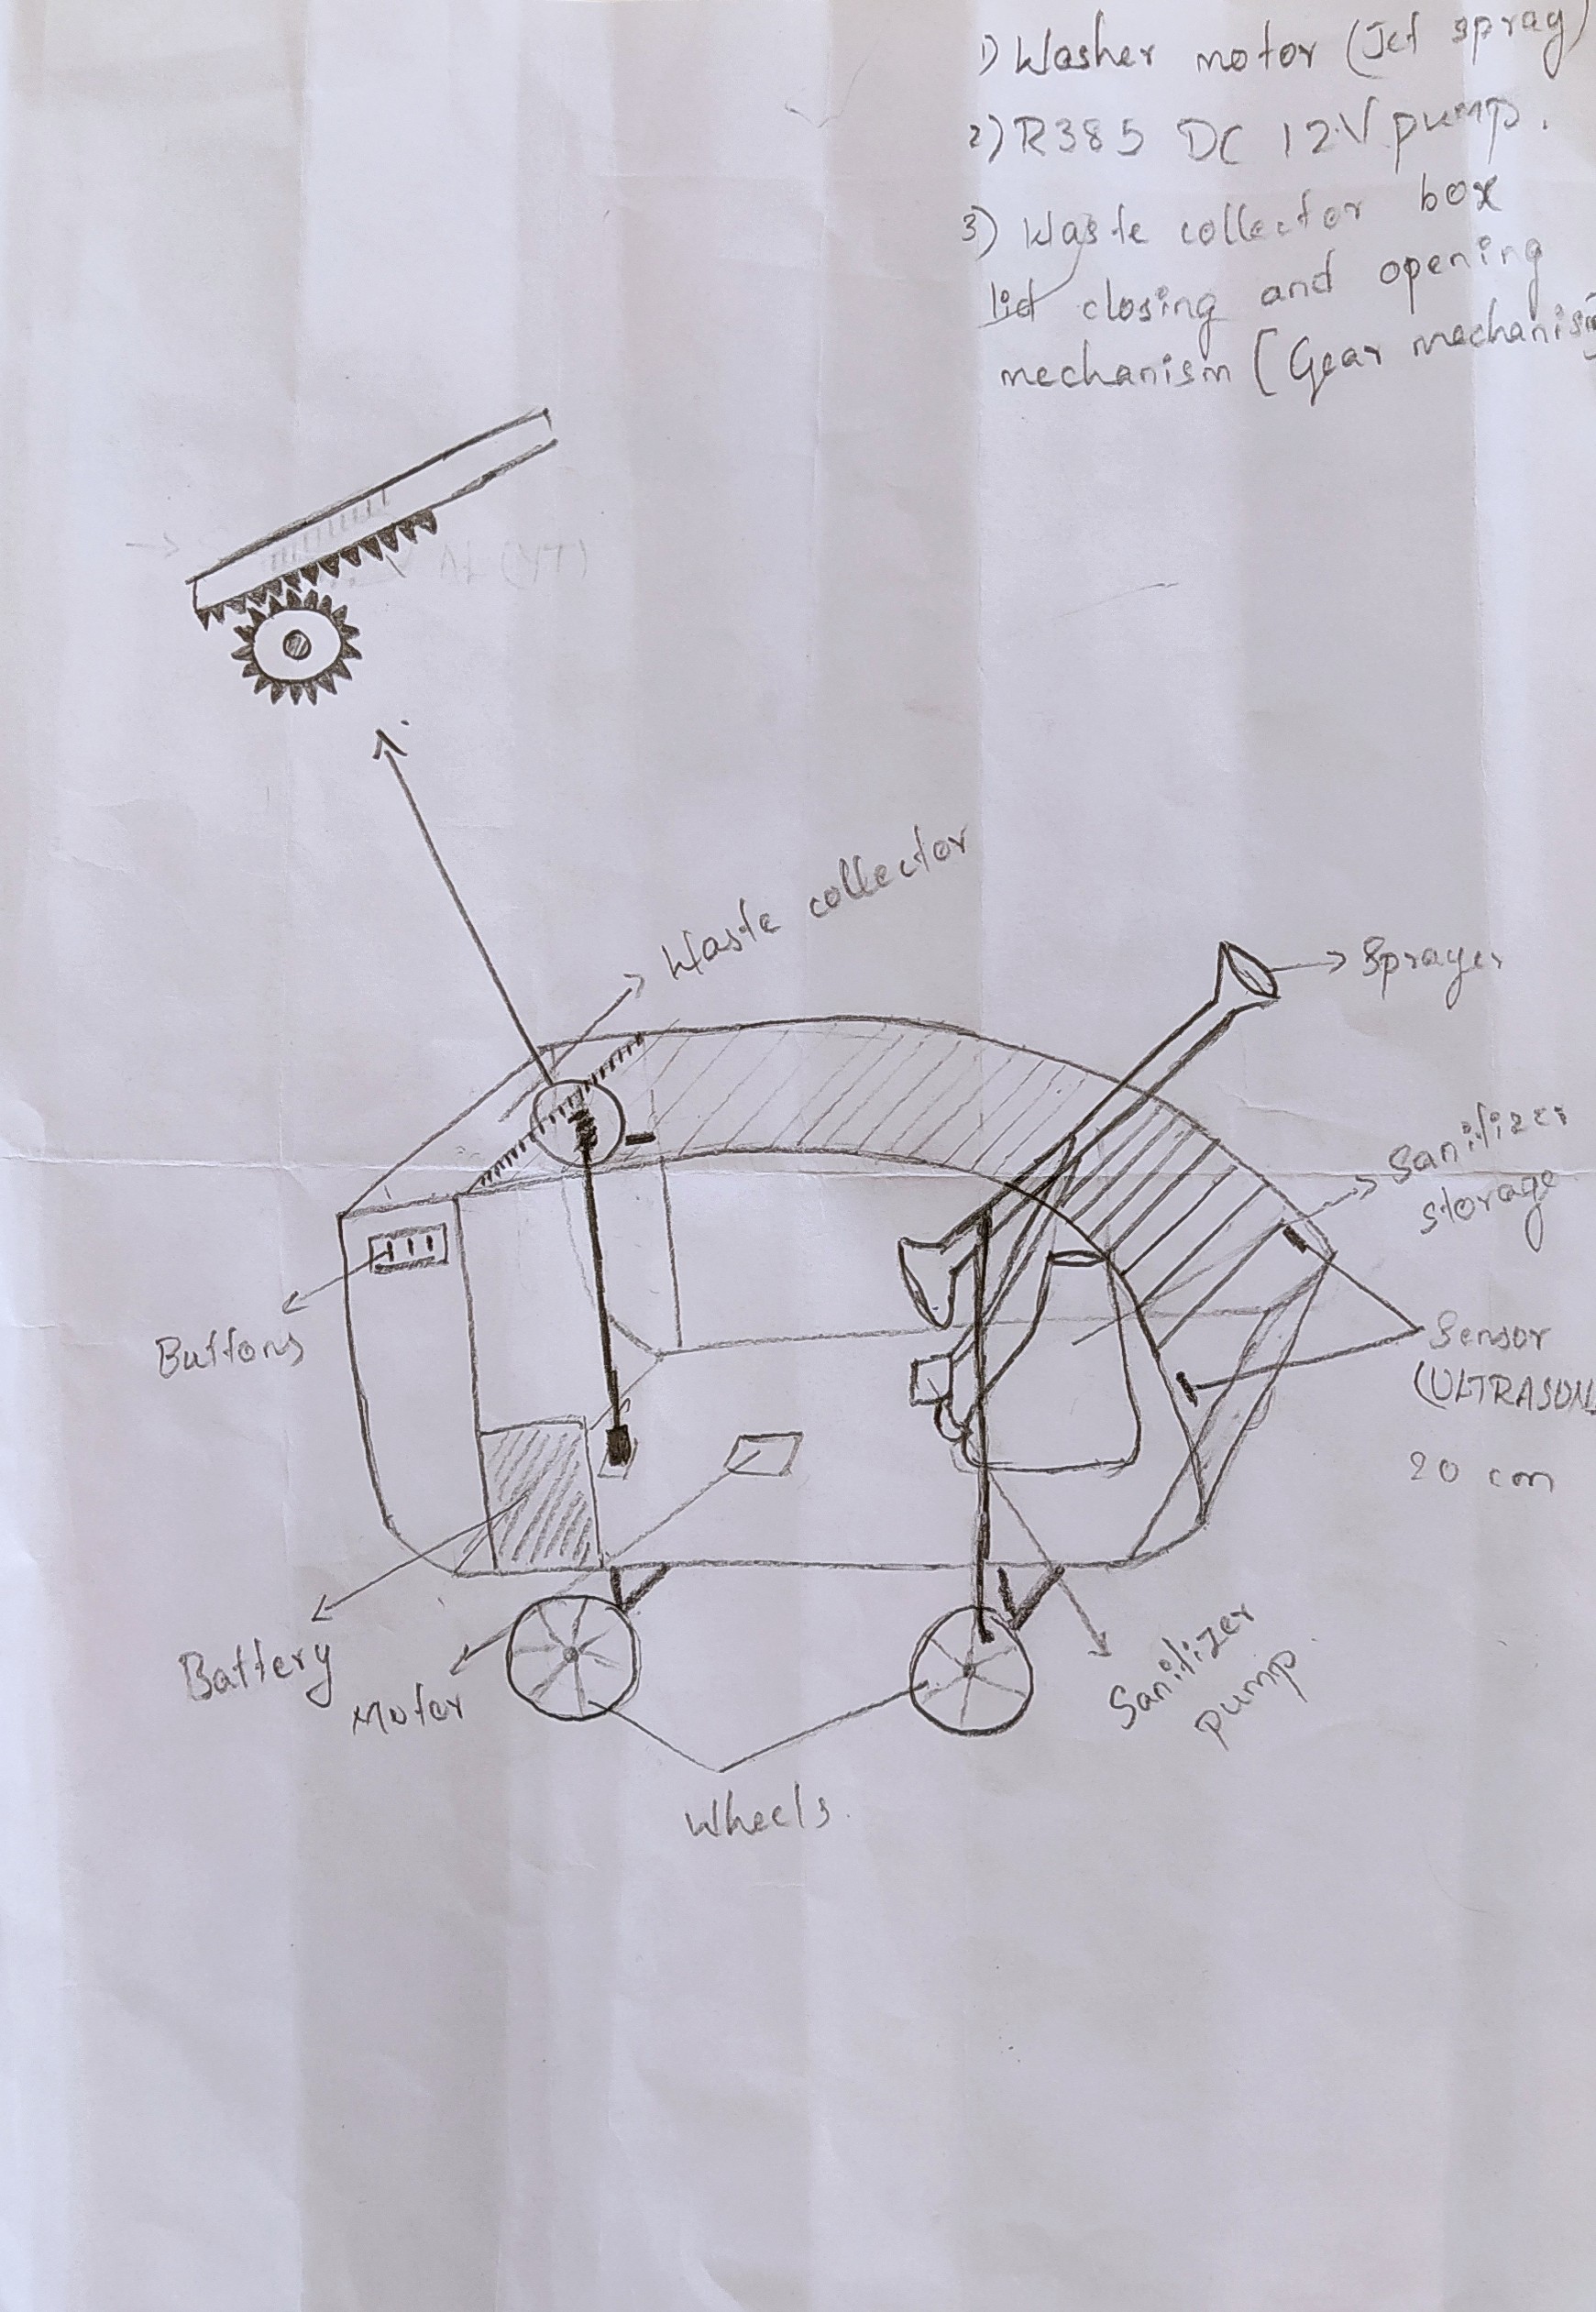 1) Washer motor (Jet spray)
2) R385 DC 12V pump.
3) Waste collector box
lid closing and opening
mechanism [Gear mechanism
Waste collector
Sprayer
Sanitizer
storage
Buttons
Sensor
(ULTRASON
20 cm
Battery
Motor
Sanitizer
pump.
Wheels.